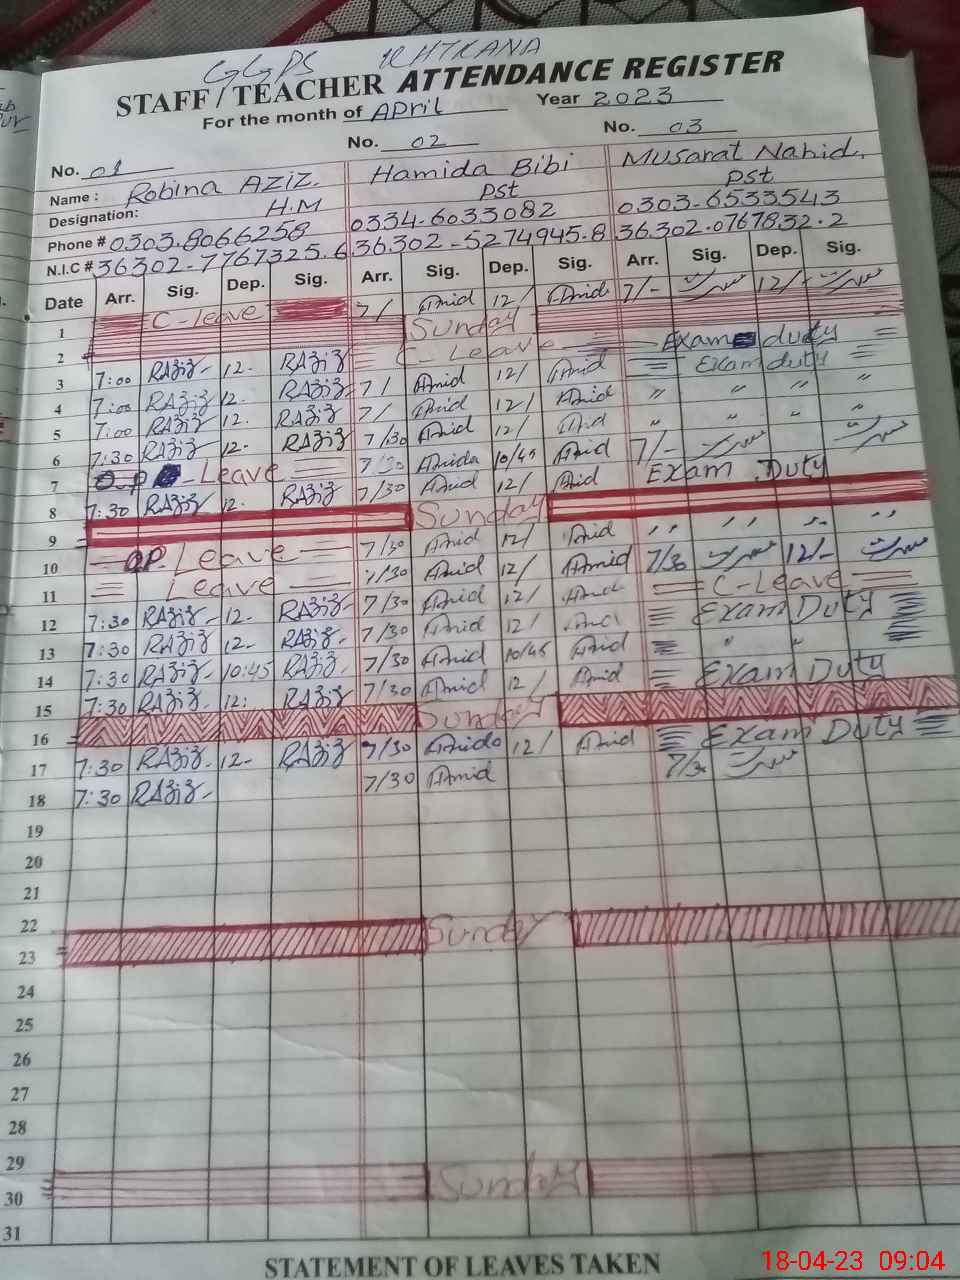 GGPS
STAFF / TEACHER ATTENDANCE REGISTER
For the month of April Year 2023
No. 01 No. 02 No. 03
Name : Robina Aziz. Hamida Bibi Musarat Nahid.
Designation: H.M Pst Pst
Phone # 0303.8066258 0334-6033082 0303-6533543
N.I.C # 36302-7767325.6 36.302-5274945.8 36302.0767832.2
Date Arr. Sig. Dep. Sig. Arr. Sig. Dep. Sig. Arr. Sig. Dep. Sig.
1 C-leave 7/ Amid 12/ Amid 7/- 12/-
2 Sunday
3 7:00 RAziz- 12. RAziz C-Leave Exam duty
4 7:00 RAziz 12. RAziz 7/ Amid 12/ Amid Exam duty
5 7:00 RAziz 12. RAziz 7/ Amid 12/ Amid " " " "
6 7:30 RAziz 12- RAziz 7/30 Amid 12/ Amid " " " "
7 Leave 7/30 Amida 10/45 Amid 7/-
8 7:30 RAziz 12. RAziz 7/30 Amid 12/ Amid Exam Duty
9 Sunday
10 OP Leave 7/30 Amid 12/ Amid " " " "
11 Leave 7/30 Amid 12/ Amid 7/30 12/-
12 7:30 RAziz- 12. RAziz- 7/30 Amid 12/ Amid C-Leave
13 7:30 RAziz- 12- RAziz- 7/30 Amid 12/ Amid Exam Duty
14 7:30 RAziz- 10:45 RAziz- 7/30 Amid 10/45 Amid " "
15 7:30 RAziz- 12: RAziz 7/30 Amid 12/ Amid Exam Duty
16 Sunday
17 7:30 RAziz- 12- RAziz 7/30 Amida 12/ Amid Exam Duty
18 7:30 RAziz- 7/30 Amid 7/30
19
20
21
22
23 Sunday
24
25
26
27
28
29
30 Sunday
31
STATEMENT OF LEAVES TAKEN
18-04-23 09:04